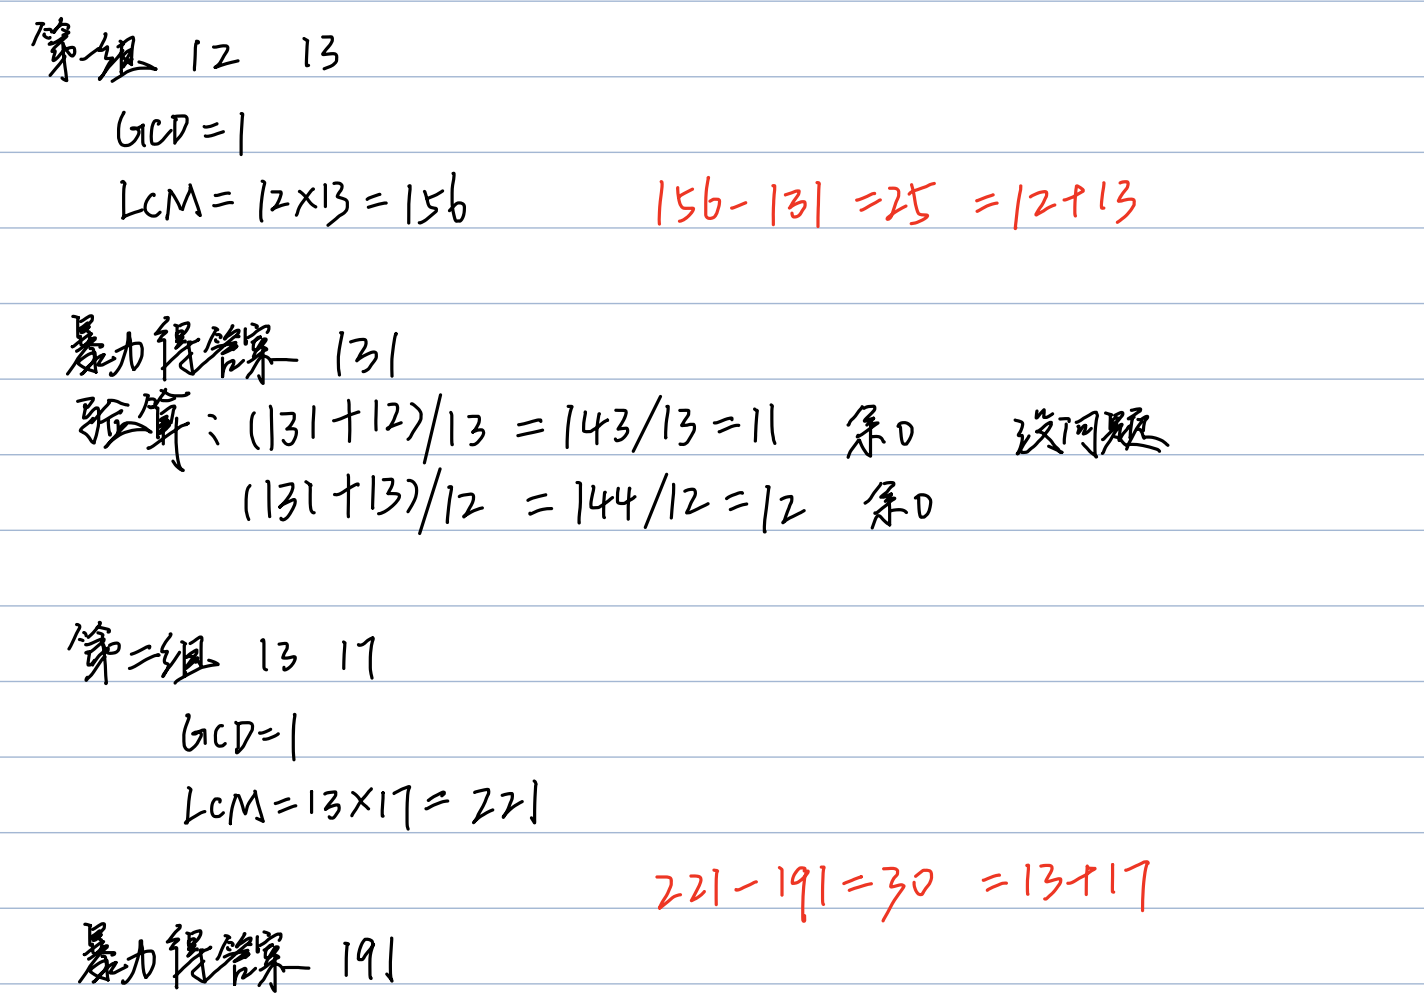 第一组 12 13
GCD=1
LCM=12×13=156 156-131=25 =12+13
暴力得答案 131
验算：(131+12)/13 =143/13=11 余0 没问题
(131+13)/12 =144/12=12 余0
第二组 13 17
GCD=1
LCM=13×17=221
221-191=30 =13+17
暴力得答案 191